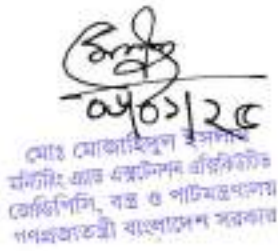 ০৬/০১/২৫
মোঃ মোজাহিদুল ইসলাম
মনিটরিং এন্ড এক্সটেনশন এক্সিকিউটিভ
জেডিপিসি, বস্ত্র ও পাটমন্ত্রণালয়
গণপ্রজাতন্ত্রী বাংলাদেশ সরকার